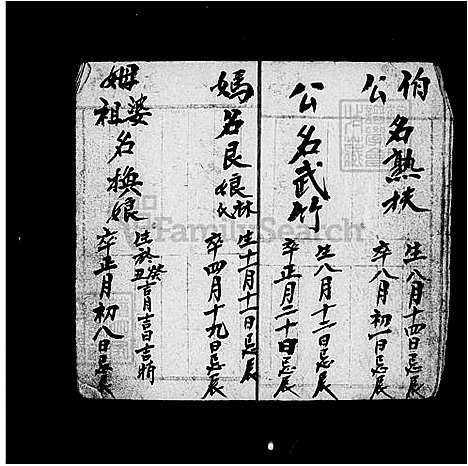 伯公名熟扶
生八月十四日忌辰
卒八月初一日忌辰
公名武竹
生八月十二日忌辰
卒正月二十日忌辰
媽名良娘林氏
生十一月十一日忌辰
卒四月十九日忌辰
婆
姆祖名換娘
生於癸丑吉月吉日吉時
卒正月初八日忌辰
FamilySearch